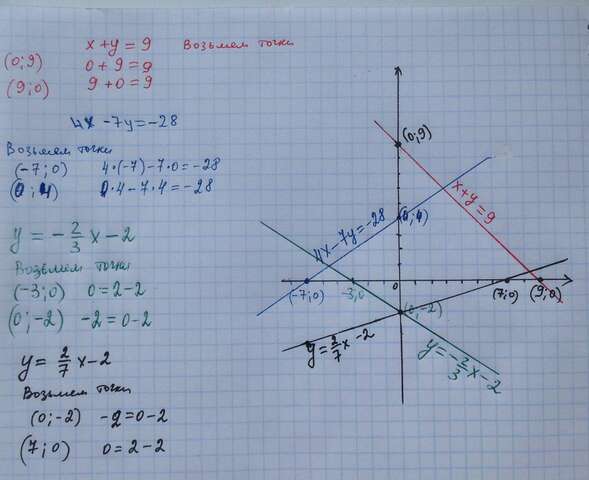 x + y = 9 Возьмем точки
(0; 9) 0 + 9 = 9
(9; 0) 9 + 0 = 9
4x - 7y = -28
Возьмем точки
(-7; 0) 4·(-7) - 7·0 = -28
(0; 4) 0·4 - 7·4 = -28
y = -2/3 x - 2
Возьмем точки
(-3; 0) 0 = 2 - 2
(0; -2) -2 = 0 - 2
y = 2/7 x - 2
Возьмем точки
(0; -2) -2 = 0 - 2
(7; 0) 0 = 2 - 2
(0; 9)
x + y = 9
4x - 7y = -28
(0; 4)
(-7; 0)
-3; 0
0
(7; 0)
(9; 0)
(0; -2)
y = 2/7 x - 2
y = -2/3 x - 2